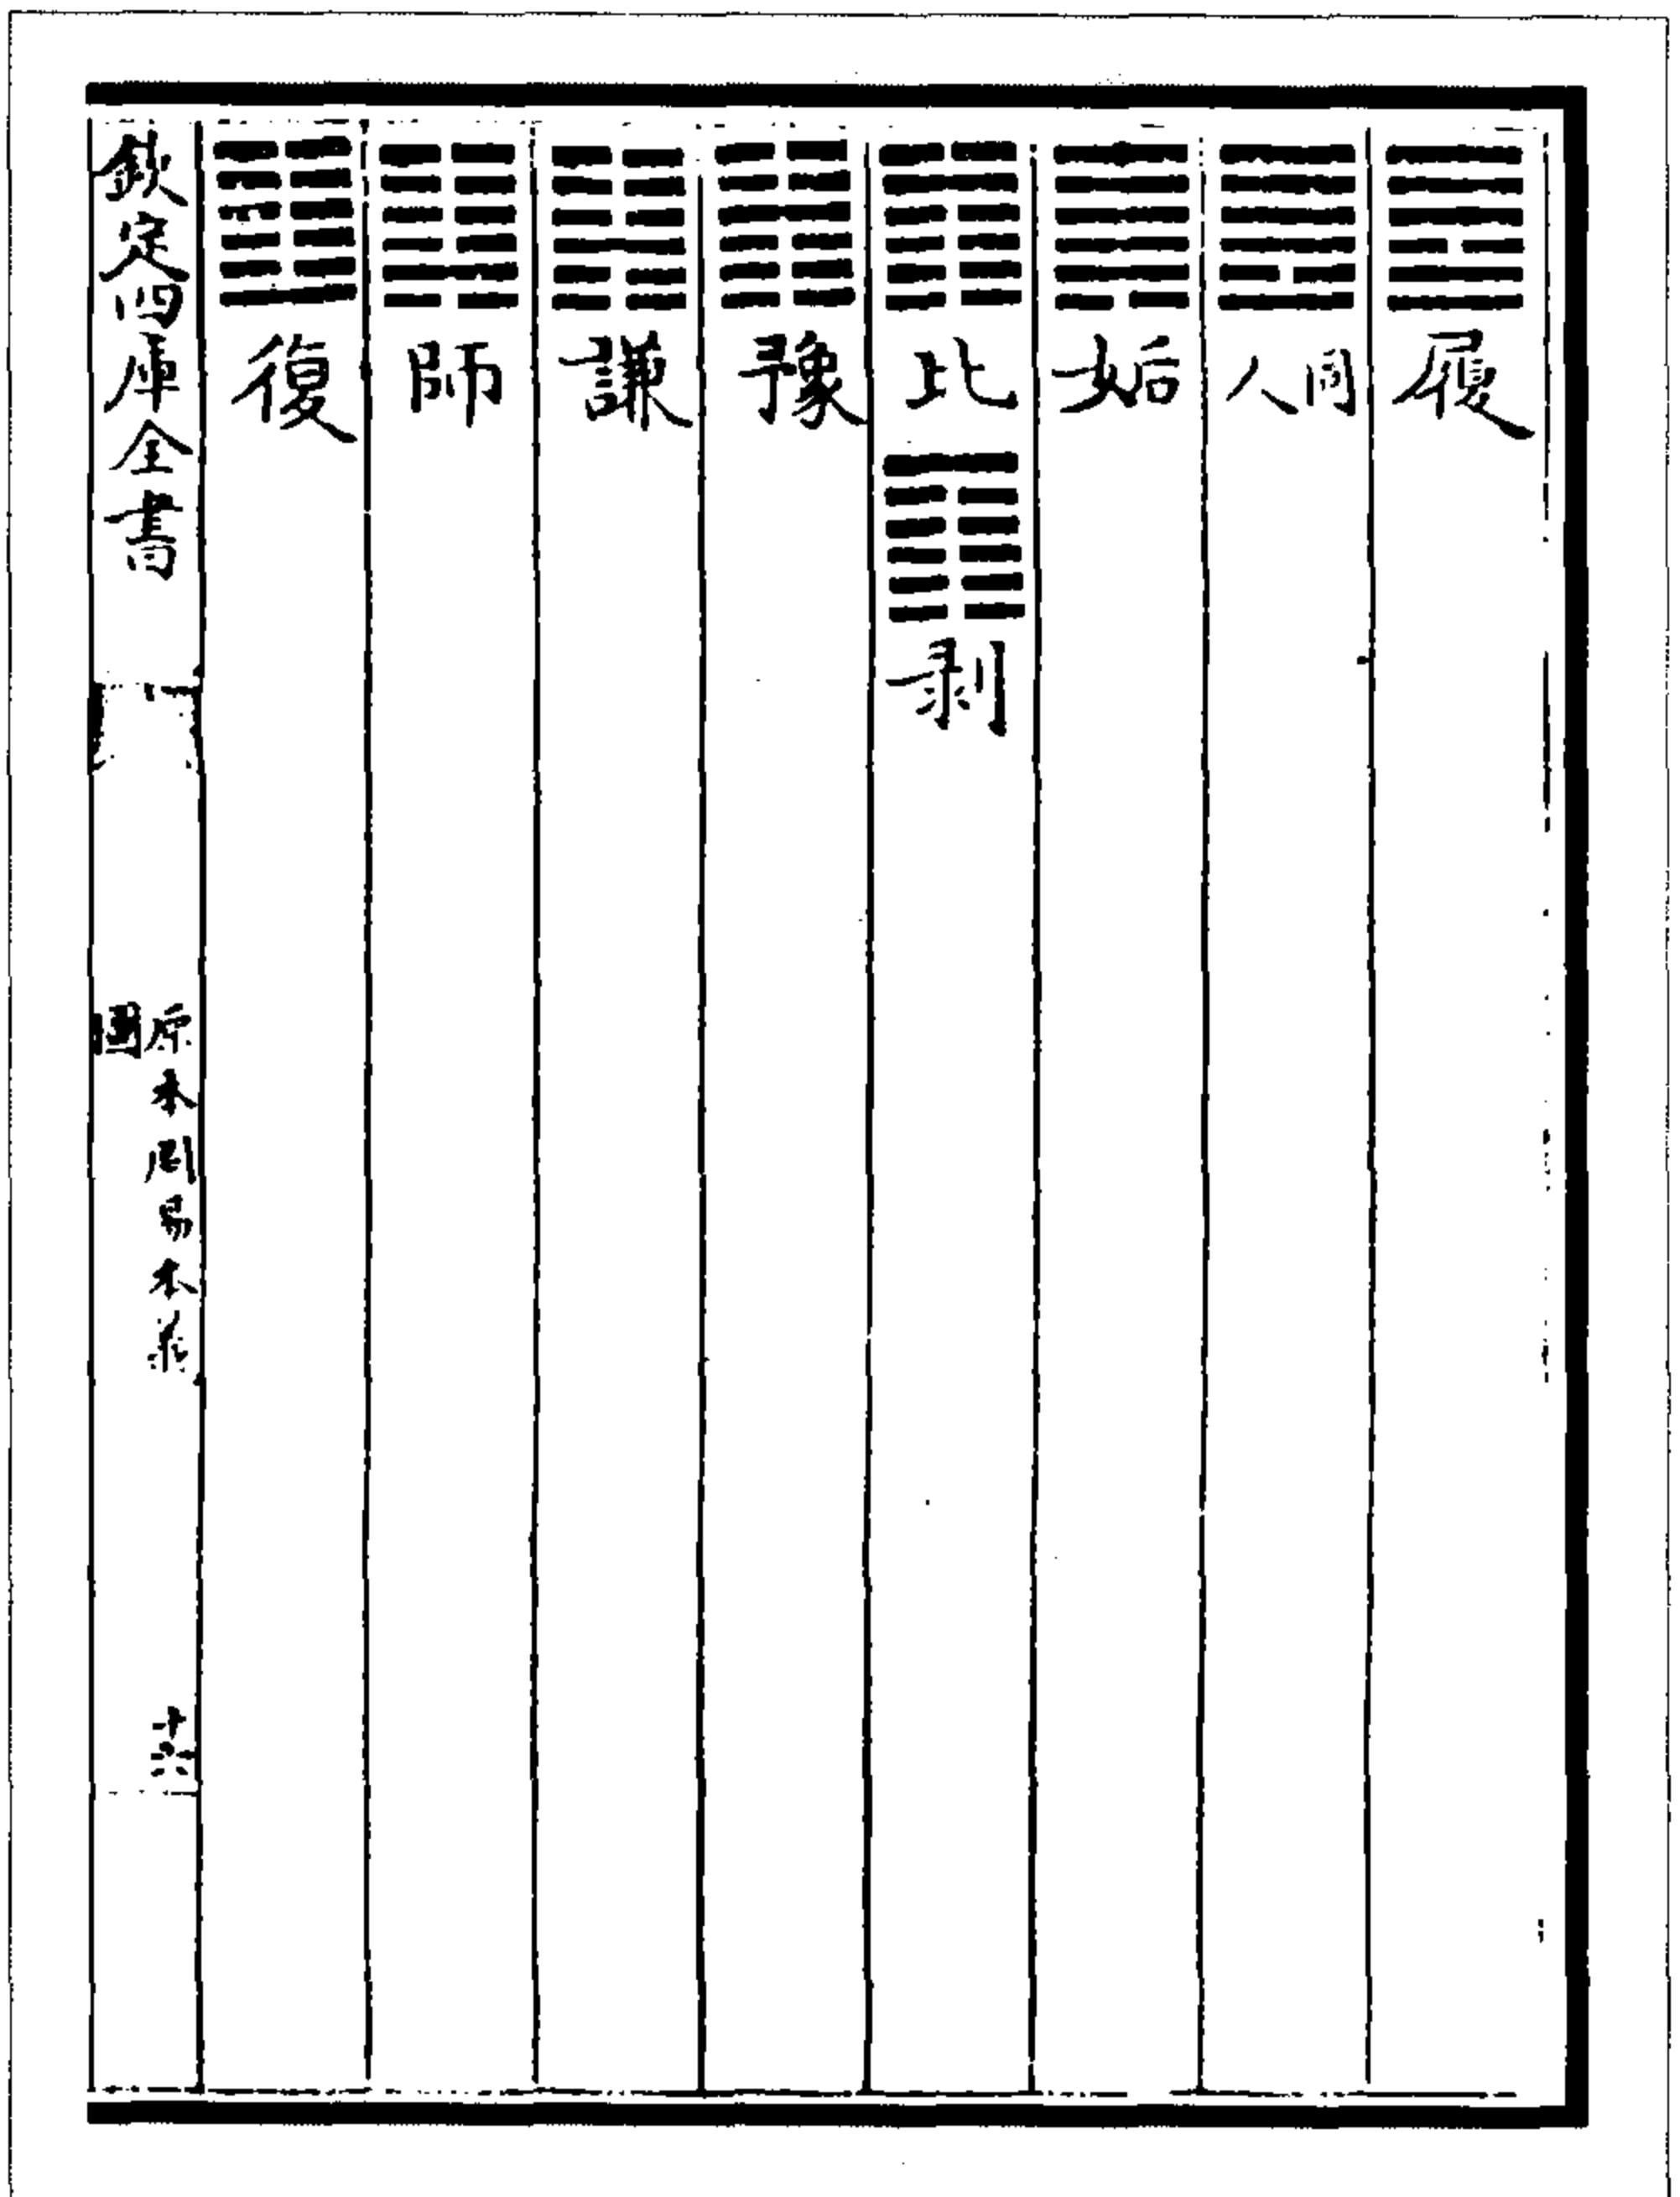 ䷉履
䷌同人
䷫姤
䷇比䷖剥
䷏豫
䷎謙
䷆師
䷗復
欽定四庫全書
原本周易本義
圖